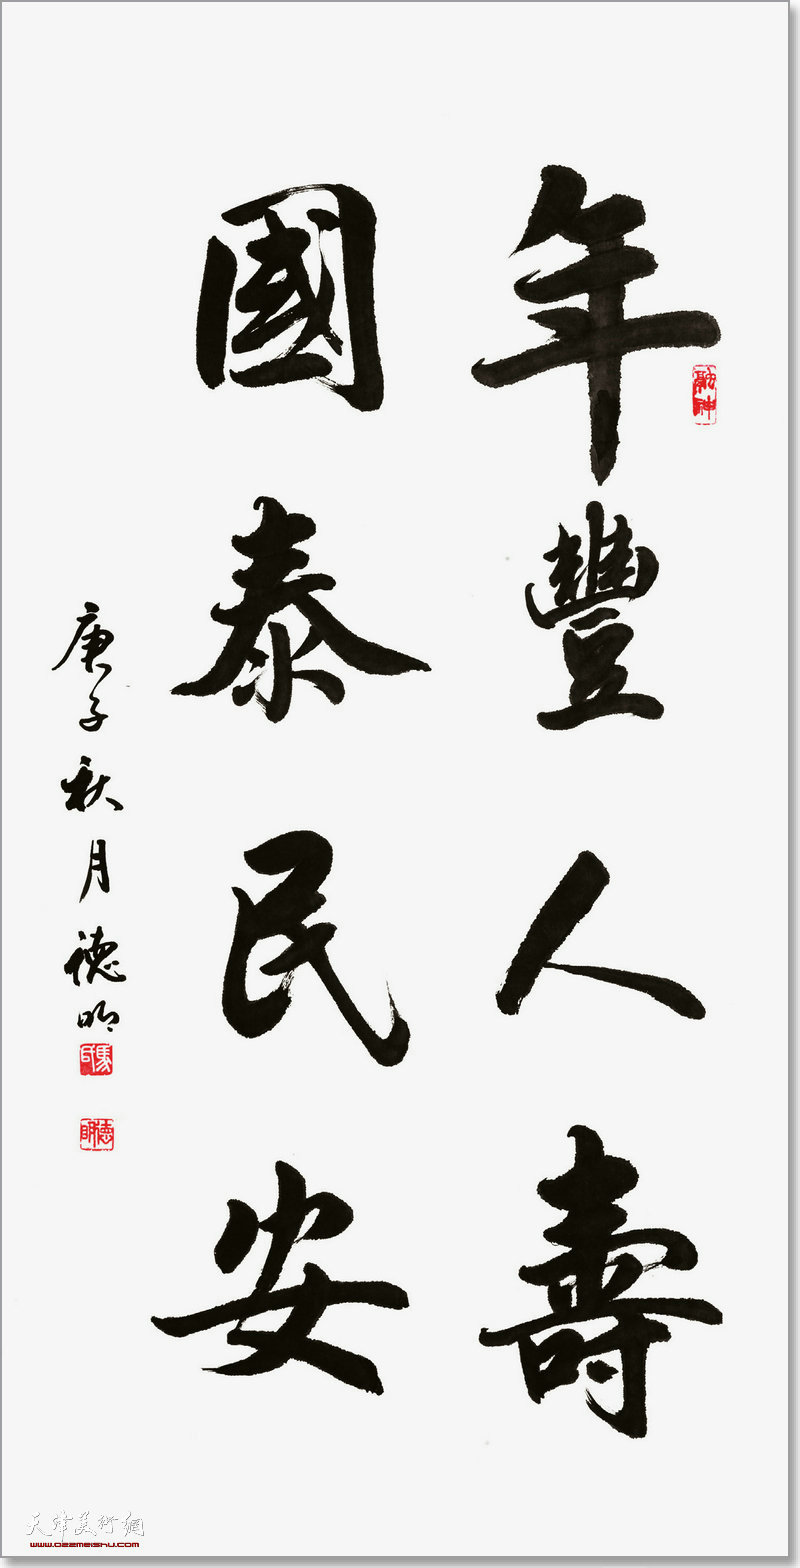 年豐人壽
國泰民安
庚子秋月德明
德明
天津美術網
www.022meishu.com